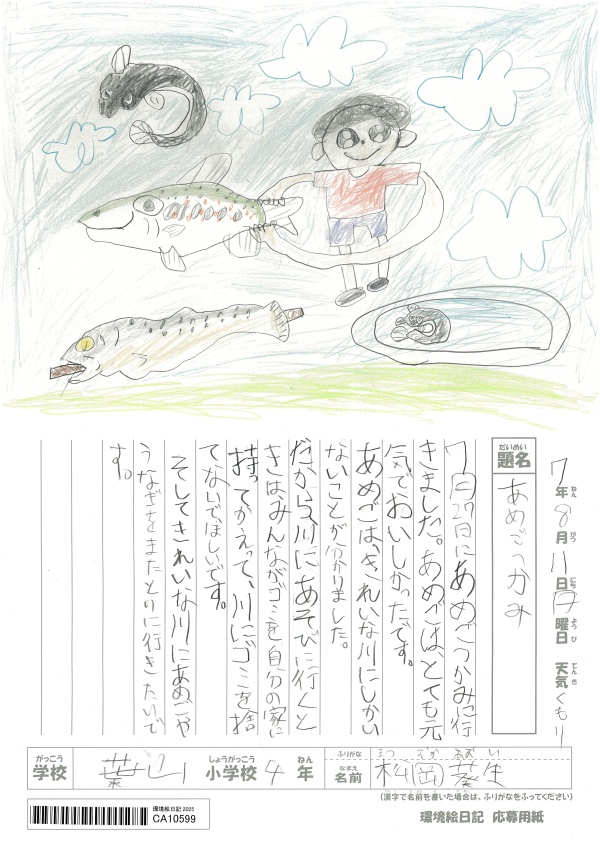 7年8月11日月曜日 天気くもり
ねん がつ にち ようび てんき
だいめい
題名
あめごつかみ
7月27日にあめごつかみに行
きました。あめごは、とても元
気でおいしかったです。
あめごは、きれいな川にしかい
ないことが分かりました。
だから、川にあそびに行くと
きは、みんながゴミを自分の家に
持ってかえって、川にゴミを捨
てないでほしいです。
そしてきれいな川にあめごや
うなぎをまたとりに行きたいで
す。
がっこう しょうがっこう ねん ふりがな まつ おか あおい
学校 葉山小学校 4年 なまえ 名前 松岡葵生
(漢字で名前を書いた場合は、ふりがなをふってください)
環境絵日記 2025
CA10599
環境絵日記 応募用紙